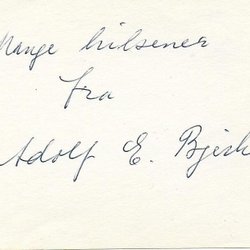 Mange hilsener
fra
Adolf E.